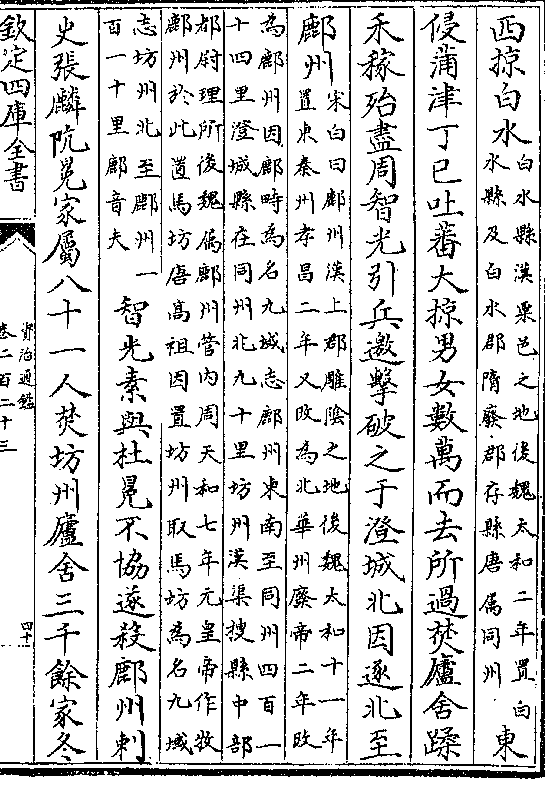 西掠白水白水縣漢粟邑之地後魏太和二年置白水縣及白水郡隋廢郡存縣唐屬同州東
侵蒲津丁巳吐蕃大掠男女數萬而去所過焚廬舍蹂
禾稼殆盡周智光引兵邀擊破之于澄城北因逐北至
鄜州宋白曰鄜州漢上郡雕陰之地後魏太和十一年置東秦州孝昌二年又改為北華州廢帝二年改
為鄜州因鄜畤為名九域志鄜州東南至同州四百一十四里澄城縣在同州北九十里坊州漢渠搜縣中部
都尉理所後魏屬鄜州管内周天和七年元皇帝作牧鄜州於此置馬坊唐高祖因置坊州取馬坊為名九域
志坊州北至鄜州一百一十里鄜音夫智光素與杜冕不協遂殺鄜州刺
史張麟阬冕家屬八十一人焚坊州廬舍三千餘家冬
欽定四庫全書
資治通鑑
卷二百二十三
四十